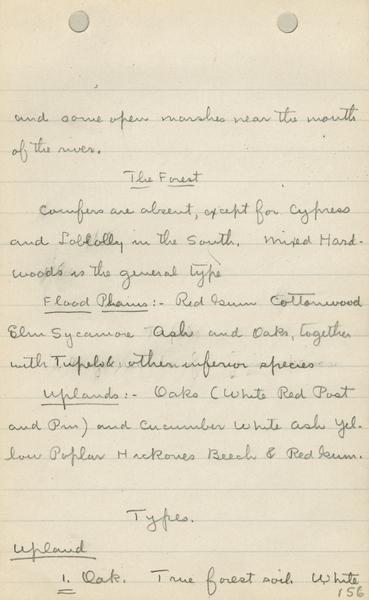 and some open marshes near the mouth
of the river.
The Forest
Conifers are absent, except for Cypress
and Loblolly in the South. Mixed Hard-
woods is the general type
Flood Plains:- Red Gum Cottonwood
Elm Sycamore Ash and Oaks, together
with Tupelo & other inferior species
Uplands:- Oaks (White Red Post
and Pin) and Cucumber White Ash Yel-
low Poplar Hickories Beech & Red Gum.
Types.
Upland
1. Oak. True forest soil. White
156